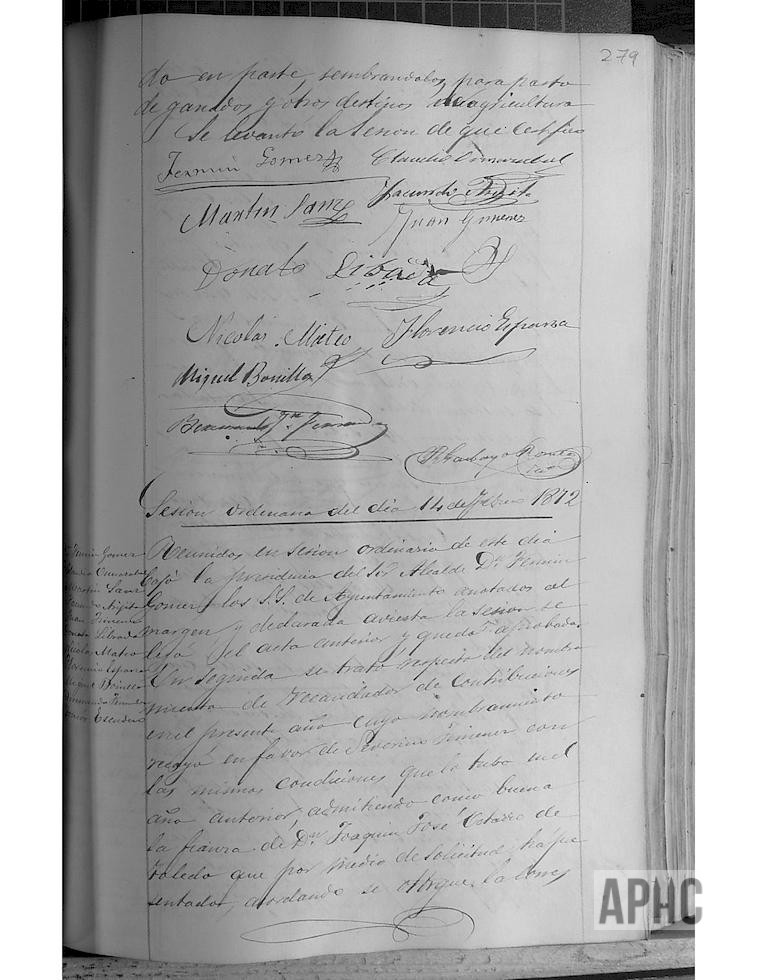 279
do en parte, sembrandolos, para pasto
de ganados y otros destinos de agricultura
Se levantó la sesion de que certifico
Fermin Gomez Claudio
Martin Sanz Facundo
Juan Gimenez
Donato Librada
Nicolas Mateo Florencio Esparza
Miguel Bonilla
P. Garbayo
Sesion ordinaria del dia 14 de Febro 1872
Fermin Gomez
Martin Sanz
Juan Gimenez
Donato Librada
Nicolas Mateo
Florencio Esparza
Miguel Bonilla
Escudero
Reunidos en sesion ordinaria de este dia
bajo la presidencia del Sr Alcalde Dn Fermin
Gomez los S.S. de Ayuntamiento anotados al
margen y declarada avierta la sesion se
leyó el acta anterior y quedó aprobada.
En seguida se trató respecto del nombra
miento de recaudador de contribuciones
en el presente año cuyo nombramiento
recayó en favor de Severino Gimenez con
las mismas condiciones que lo tubo en el
año anterior, admitiendo como buena
la fianza de Dn Joaquin José de
Toledo que por medio de solicitud há pre
sentado, acordando se otorgue la
APHC